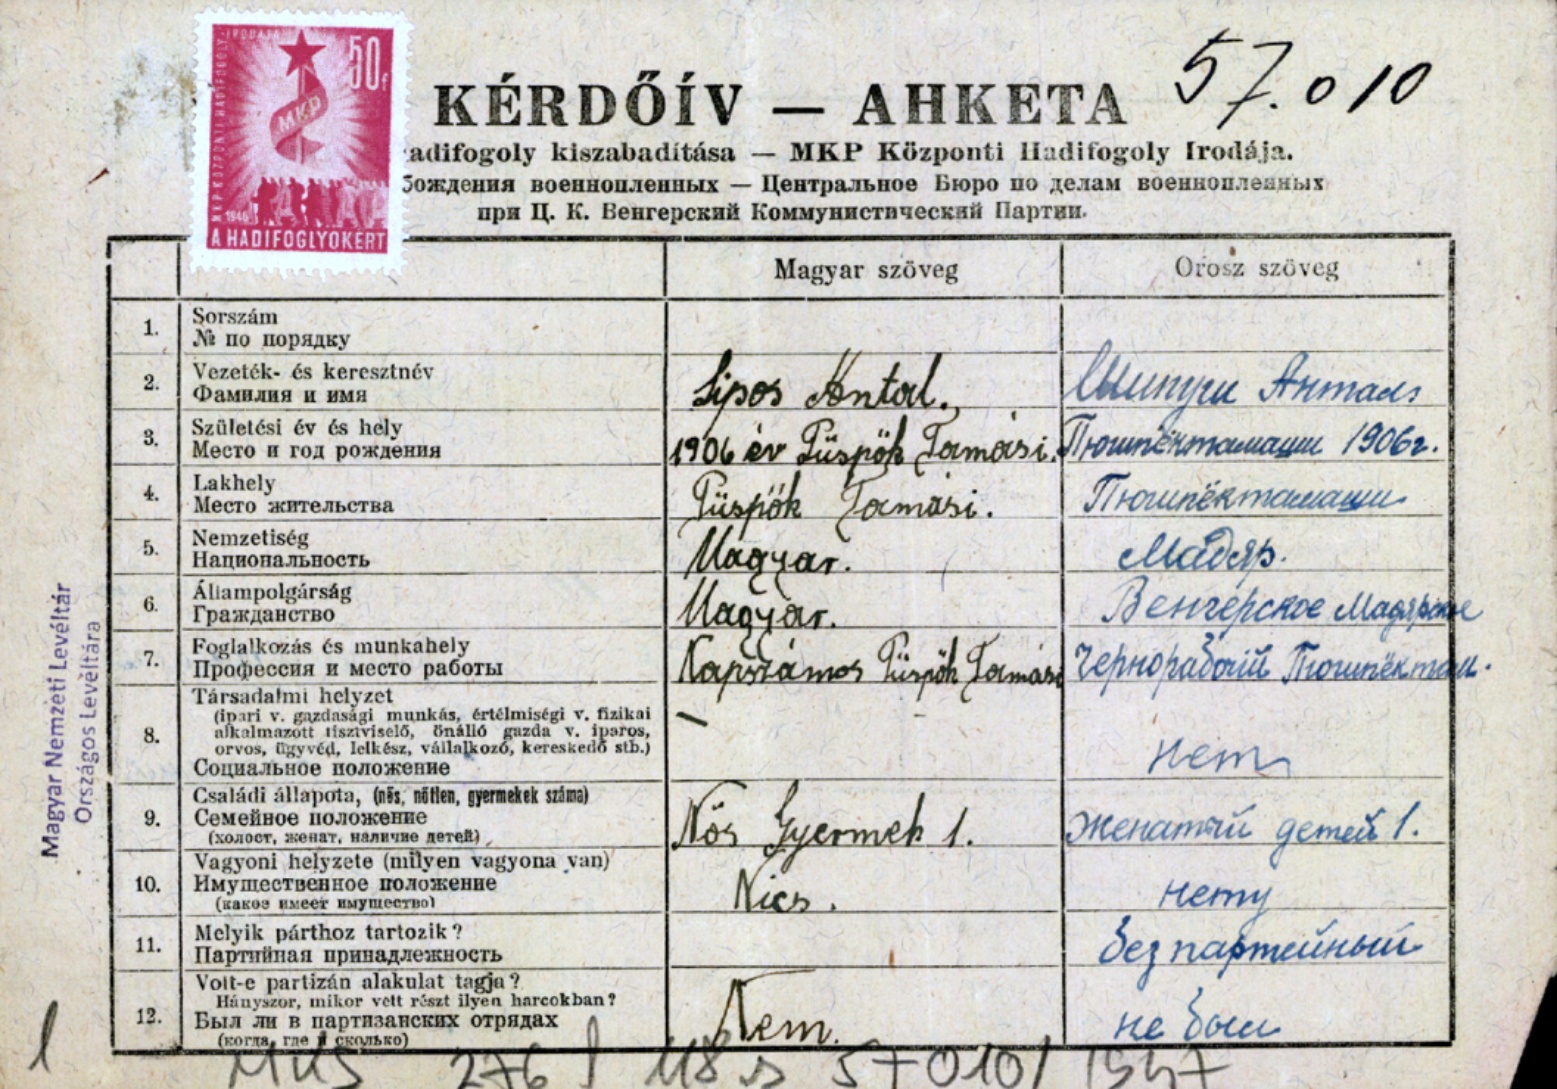 MKP KÖZPONTI HADIFOGOLY-IRODÁJA
50f
MKP
1946
A HADIFOGLYOKÉRT
57.010
KÉRDŐÍV — АНКЕТА
adifogoly kiszabadítása — MKP Központi Hadifogoly Irodája.
бождения военнопленных — Центральное Бюро по делам военнопленных
при Ц. К. Венгерский Коммунистический Партии.
Magyar szöveg Orosz szöveg
1. Sorszám
№ по порядку
2. Vezeték- és keresztnév
Фамилия и имя
Sipos Antal. Антал
3. Születési év és hely
Место и год рождения
1906 év Püspök Tamási. Пюшпёктамаши 1906г.
4. Lakhely
Место жительства
Püspök Tamási. Пюшпёктамаши
5. Nemzetiség
Национальность
Magyar. Мадяр.
6. Állampolgárság
Гражданство
Magyar. Венгерское Мадярское
7. Foglalkozás és munkahely
Профессия и место работы
Napszámos Püspök Tamási Чернорабочій Пюшпёктам.
8. Társadalmi helyzet
(ipari v. gazdasági munkás, értélmiségi v. fizikai
alkalmazott tisztviselő, önálló gazda v. iparos,
orvos, ügyvéd, lelkész, vállalkozó, kereskedő stb.)
Социальное положение
— нет
9. Családi állapota, (nős, nőtlen, gyermekek száma)
Семейное положение
(холост, женат, наличие детей)
Nős Gyermek 1. женатый детей 1.
10. Vagyoni helyzete (milyen vagyona van)
Имущественное положение
(какое имеет имущество)
Nics. нету
11. Melyik párthoz tartozik?
Партийная принадлежность
без партейный
12. Volt-e partizán alakulat tagja?
Hányszor, mikor vett részt ilyen harcokban?
Был ли в партизанских отрядах
(когда, где и сколько)
Nem. не был
Magyar Nemzeti Levéltár
Országos Levéltára
1
276 57010/1947